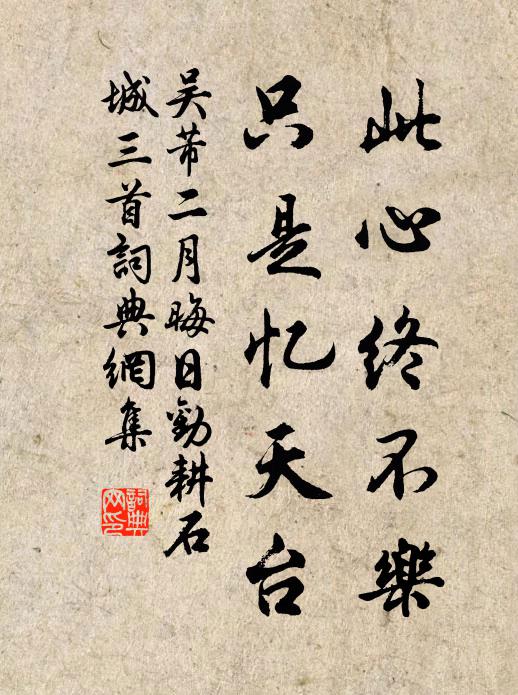 此心终不樂
只是忆天台
吴芾二月晦日劝耕石
城三首詞典網集
詞典网印